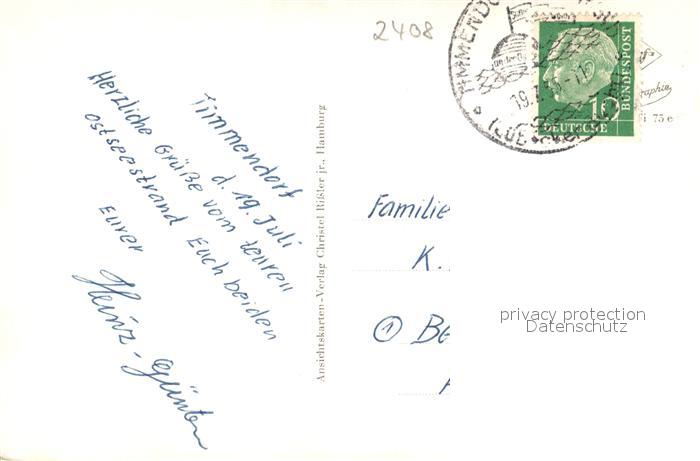 2408
TIMMENDO
19.7.5
BUNDESPOST
10
DEUTSCHE
75 e
Timmendorf
d. 19. Juli
Herzliche Grüße vom teuren
Ostseestrand Euch beiden
Eurer
Heinz-Günter
Ansichtskarten-Verlag Christel Rißler jr., Hamburg
Familie
K.
① Be
privacy protection
Datenschutz